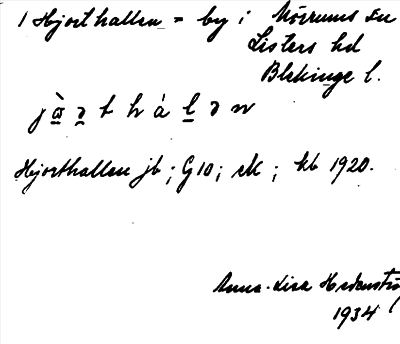 1 Hjorthallen = by i Mörrums sn
Listers hd
Blekinge l.
Hjorthallen jb ; G10 ; ek ; kb 1920.
Anna-Lisa Hedenströ
1934